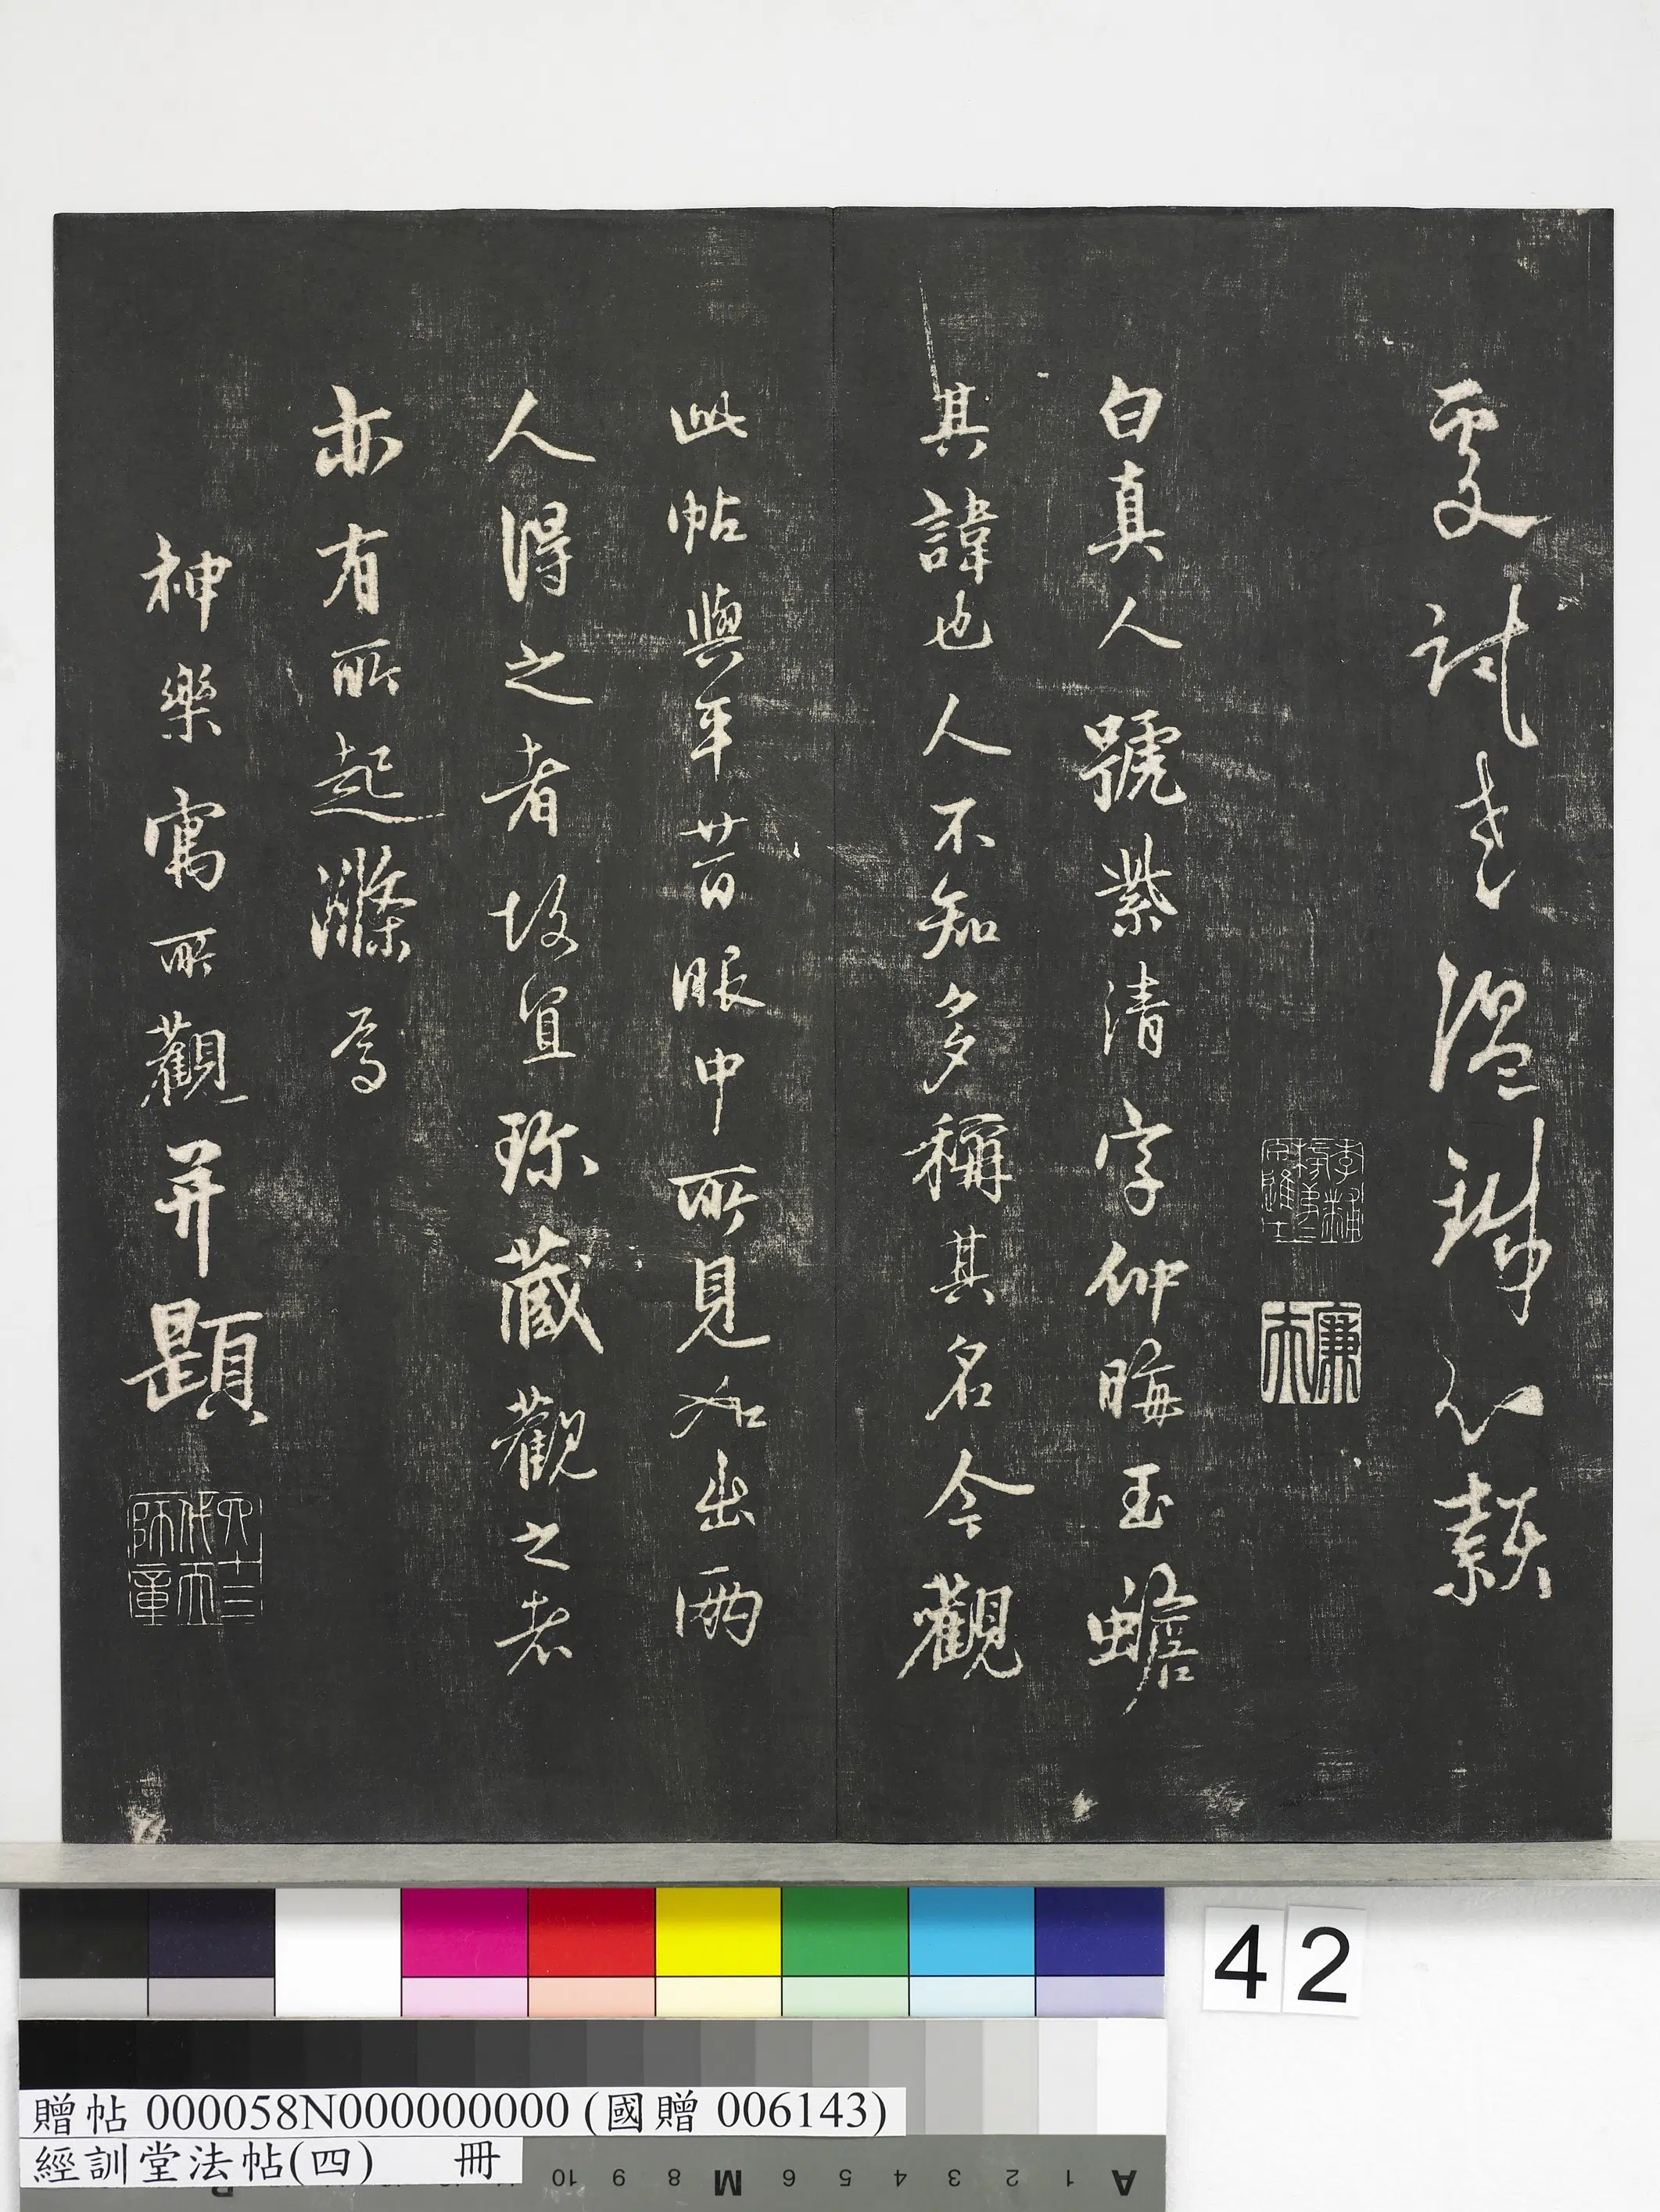 老溫
李黼榜第二甲進士
廉夫
白真人號紫清字仲晦玉蟾
其諱也人不知多稱其名今觀
此帖與平昔眼中所見如出兩
人得之者故宜珍藏觀之者
亦有所起滌焉
神樂寓所觀并題
四十三代天師章
42
贈帖 000058N000000000 (國贈 006143)
經訓堂法帖(四) 冊
A 1 2 3 4 5 6 M 8 9 10